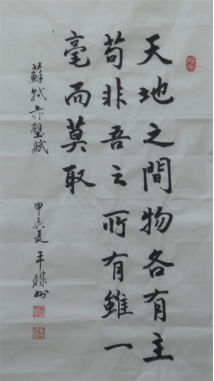 天地之間物各有主
苟非吾之所有雖一
毫而莫取
蘇軾赤壁賦
甲辰夏